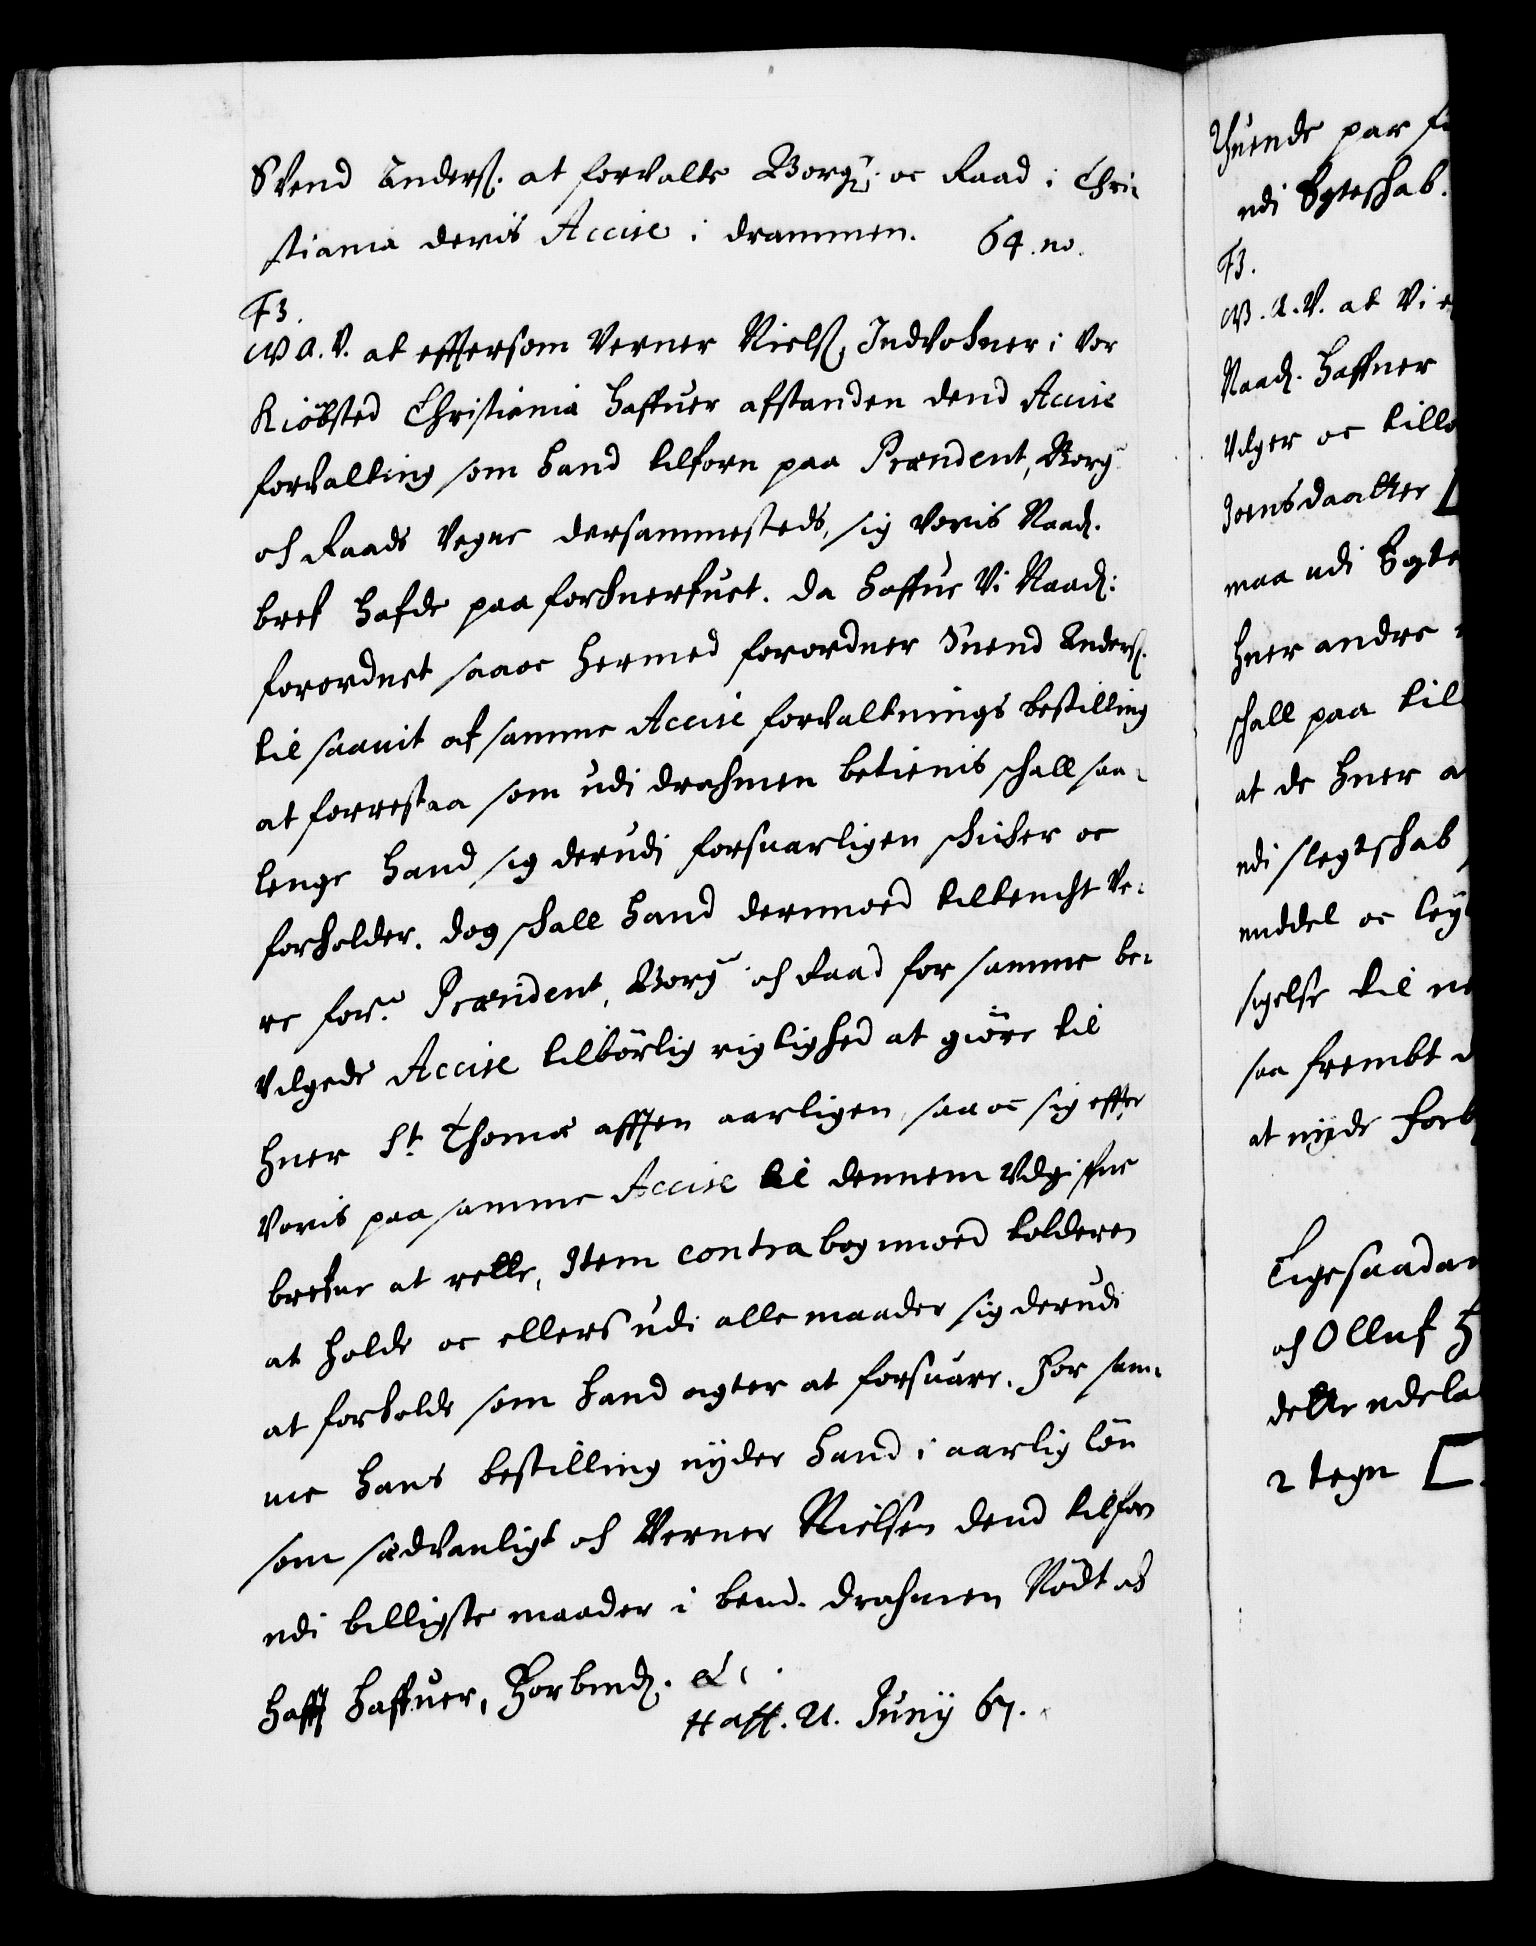 Svend Anders. at forvalte Borg: oc Raad i Chri-
stiania deris Accise i drammen. 64. no.
F3.
W A. V. at effersom Verner Niels, Indvohner i Vor
Kiöbsted Christiania haffuer afstanden dend Accise
forvalting som hand tilforn paa Præsident, Borg
och Raads Vegne dersammesteds, sig voris Naad.
bref hafde paa forhuerfuet. da haffue Vi Naad:
forordnet saa oc hermed forordner Suend Anders.
til saauit af samme Accise forvaltnings bestilling
at forrestaa som udi drahmen betienis schall saa-
lenge hand sig derudi forsuarligen schicker oc
forholder. dog schall hand dermoed tiltencht Ve-
re for: Præsident, Borg och Raad for samme be-
vilgede Accise tilbörlig rigtighed at giöre til
huer St Thomæ afften aarligen, saa oc sig effter
Voris paa samme Accise til dennem Vdgiffne
brefue at rette, Item contrabog moed tolderen
at holde oc ellers udi alle maader sig derudi
at forholde som hand agter at forsuare. For sam-
me hans bestilling nyder hand i aarlig lön
som sædvanligt och Verner Nielsen dend tilforn
udi billigste maader i bemd. drahmen Nödt oc
hafft haffuer, Forbiud. &c.
Haff. 21. Junij 67.
Thuende par
udi Egteschab.
F3.
W. A. V. at Vi
Naad. haffuer
Vilger oc
Joensdaatter
maa udi
huer andre
schall paa
at de huer
udi slegtschab
middel oc
sigelse til
saa frembt
at nyde

och Olluf
dette
2 tegn